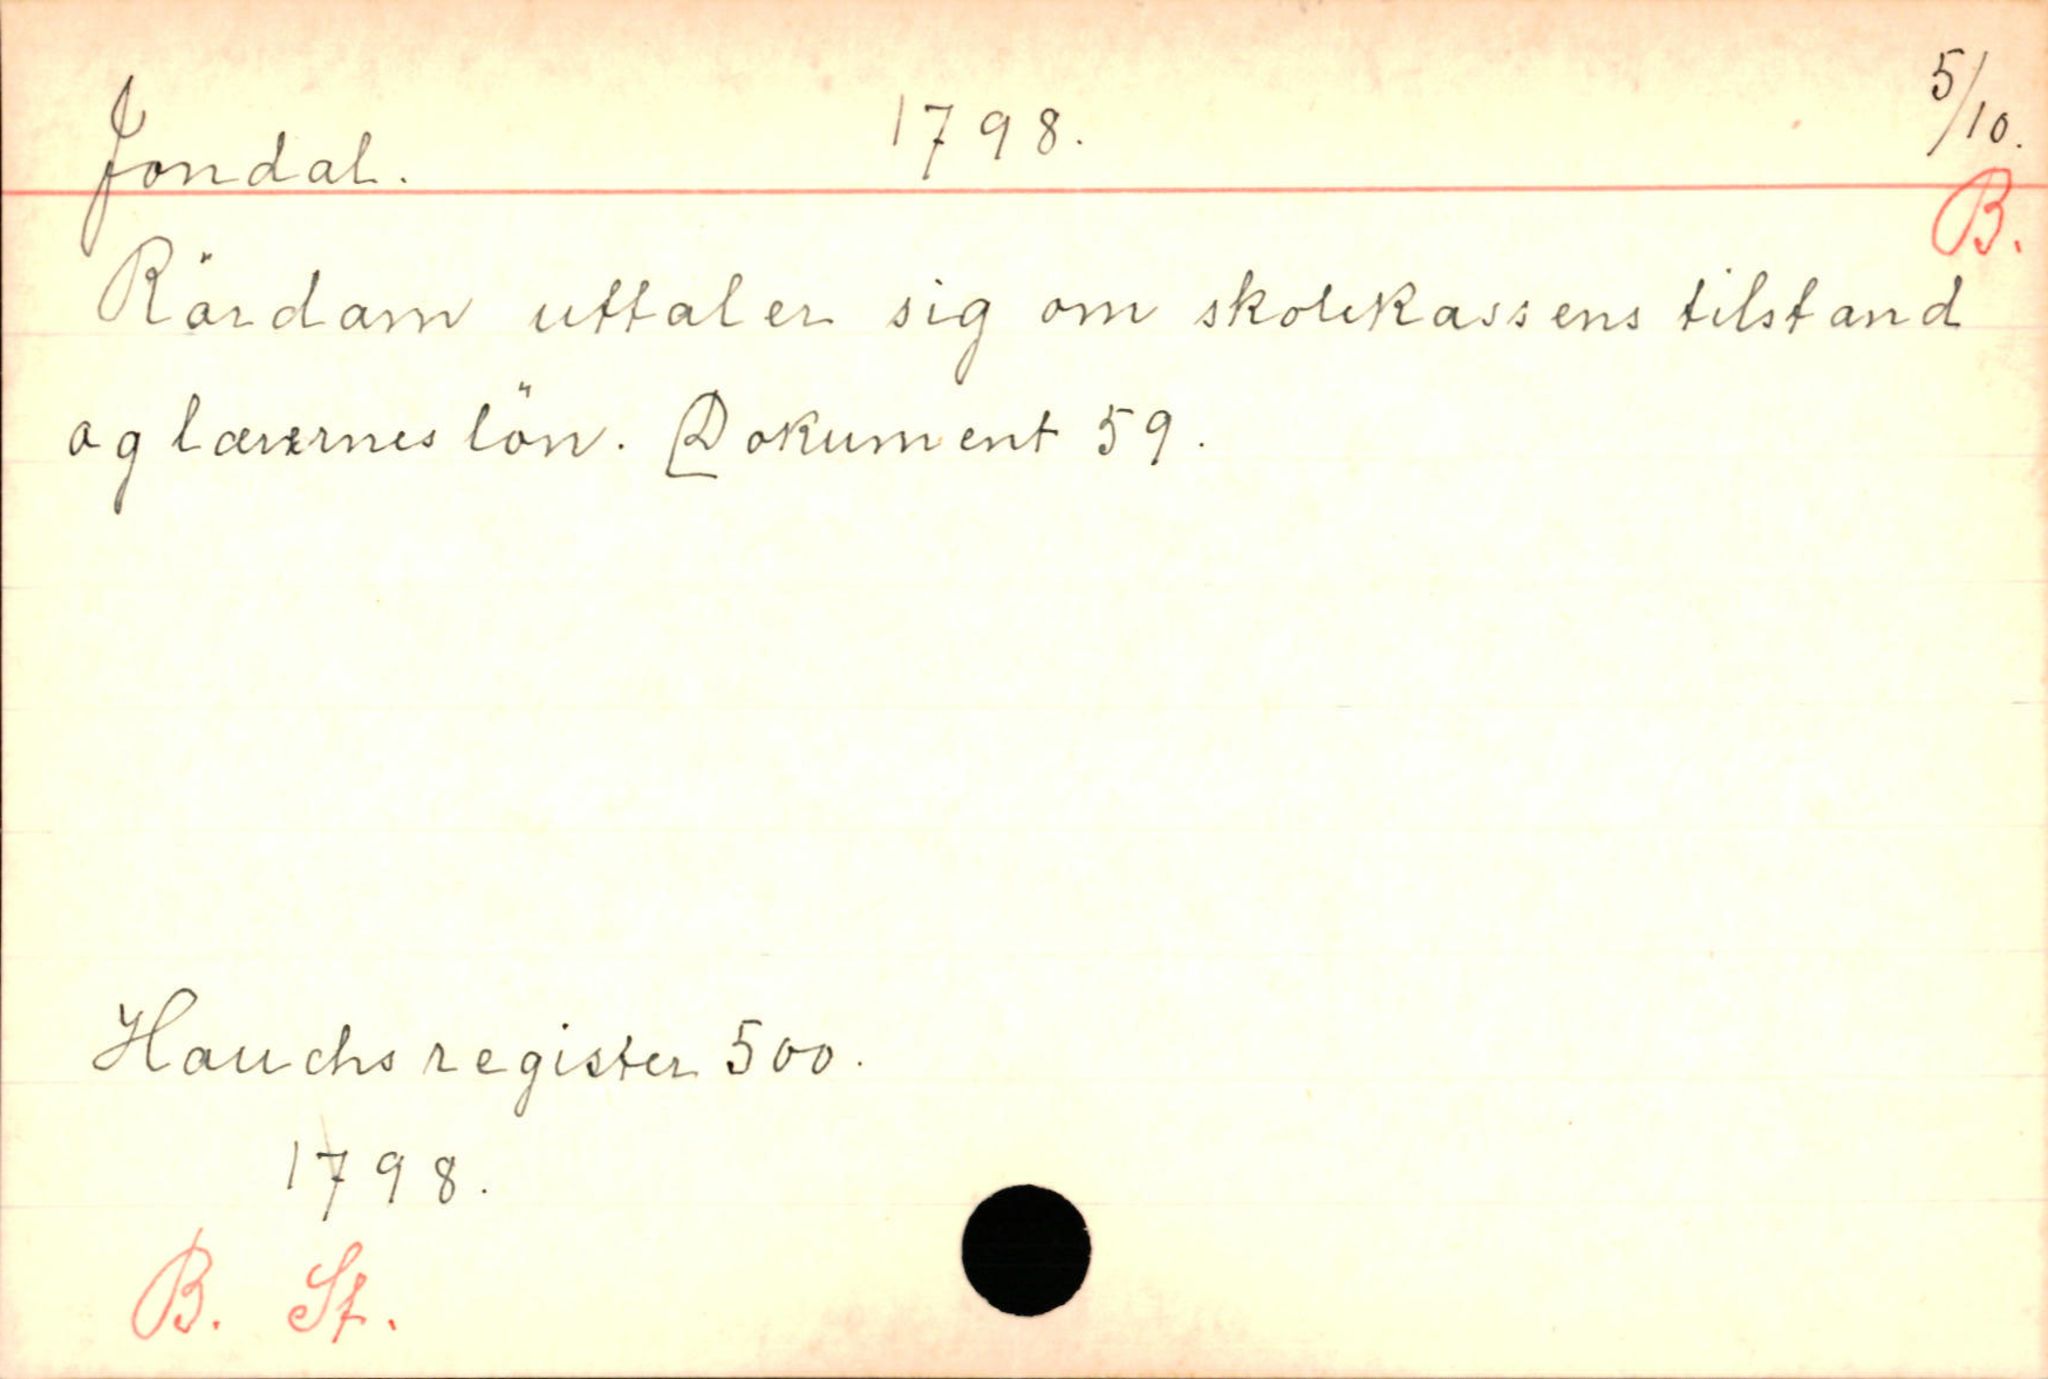 Jondal. 1798. 5/10.
B.
Rördam uttaler sig om skolekassens tilstand
og lærernes lön. Dokument 59.
Hauchs register 500.
1798.
B. St.